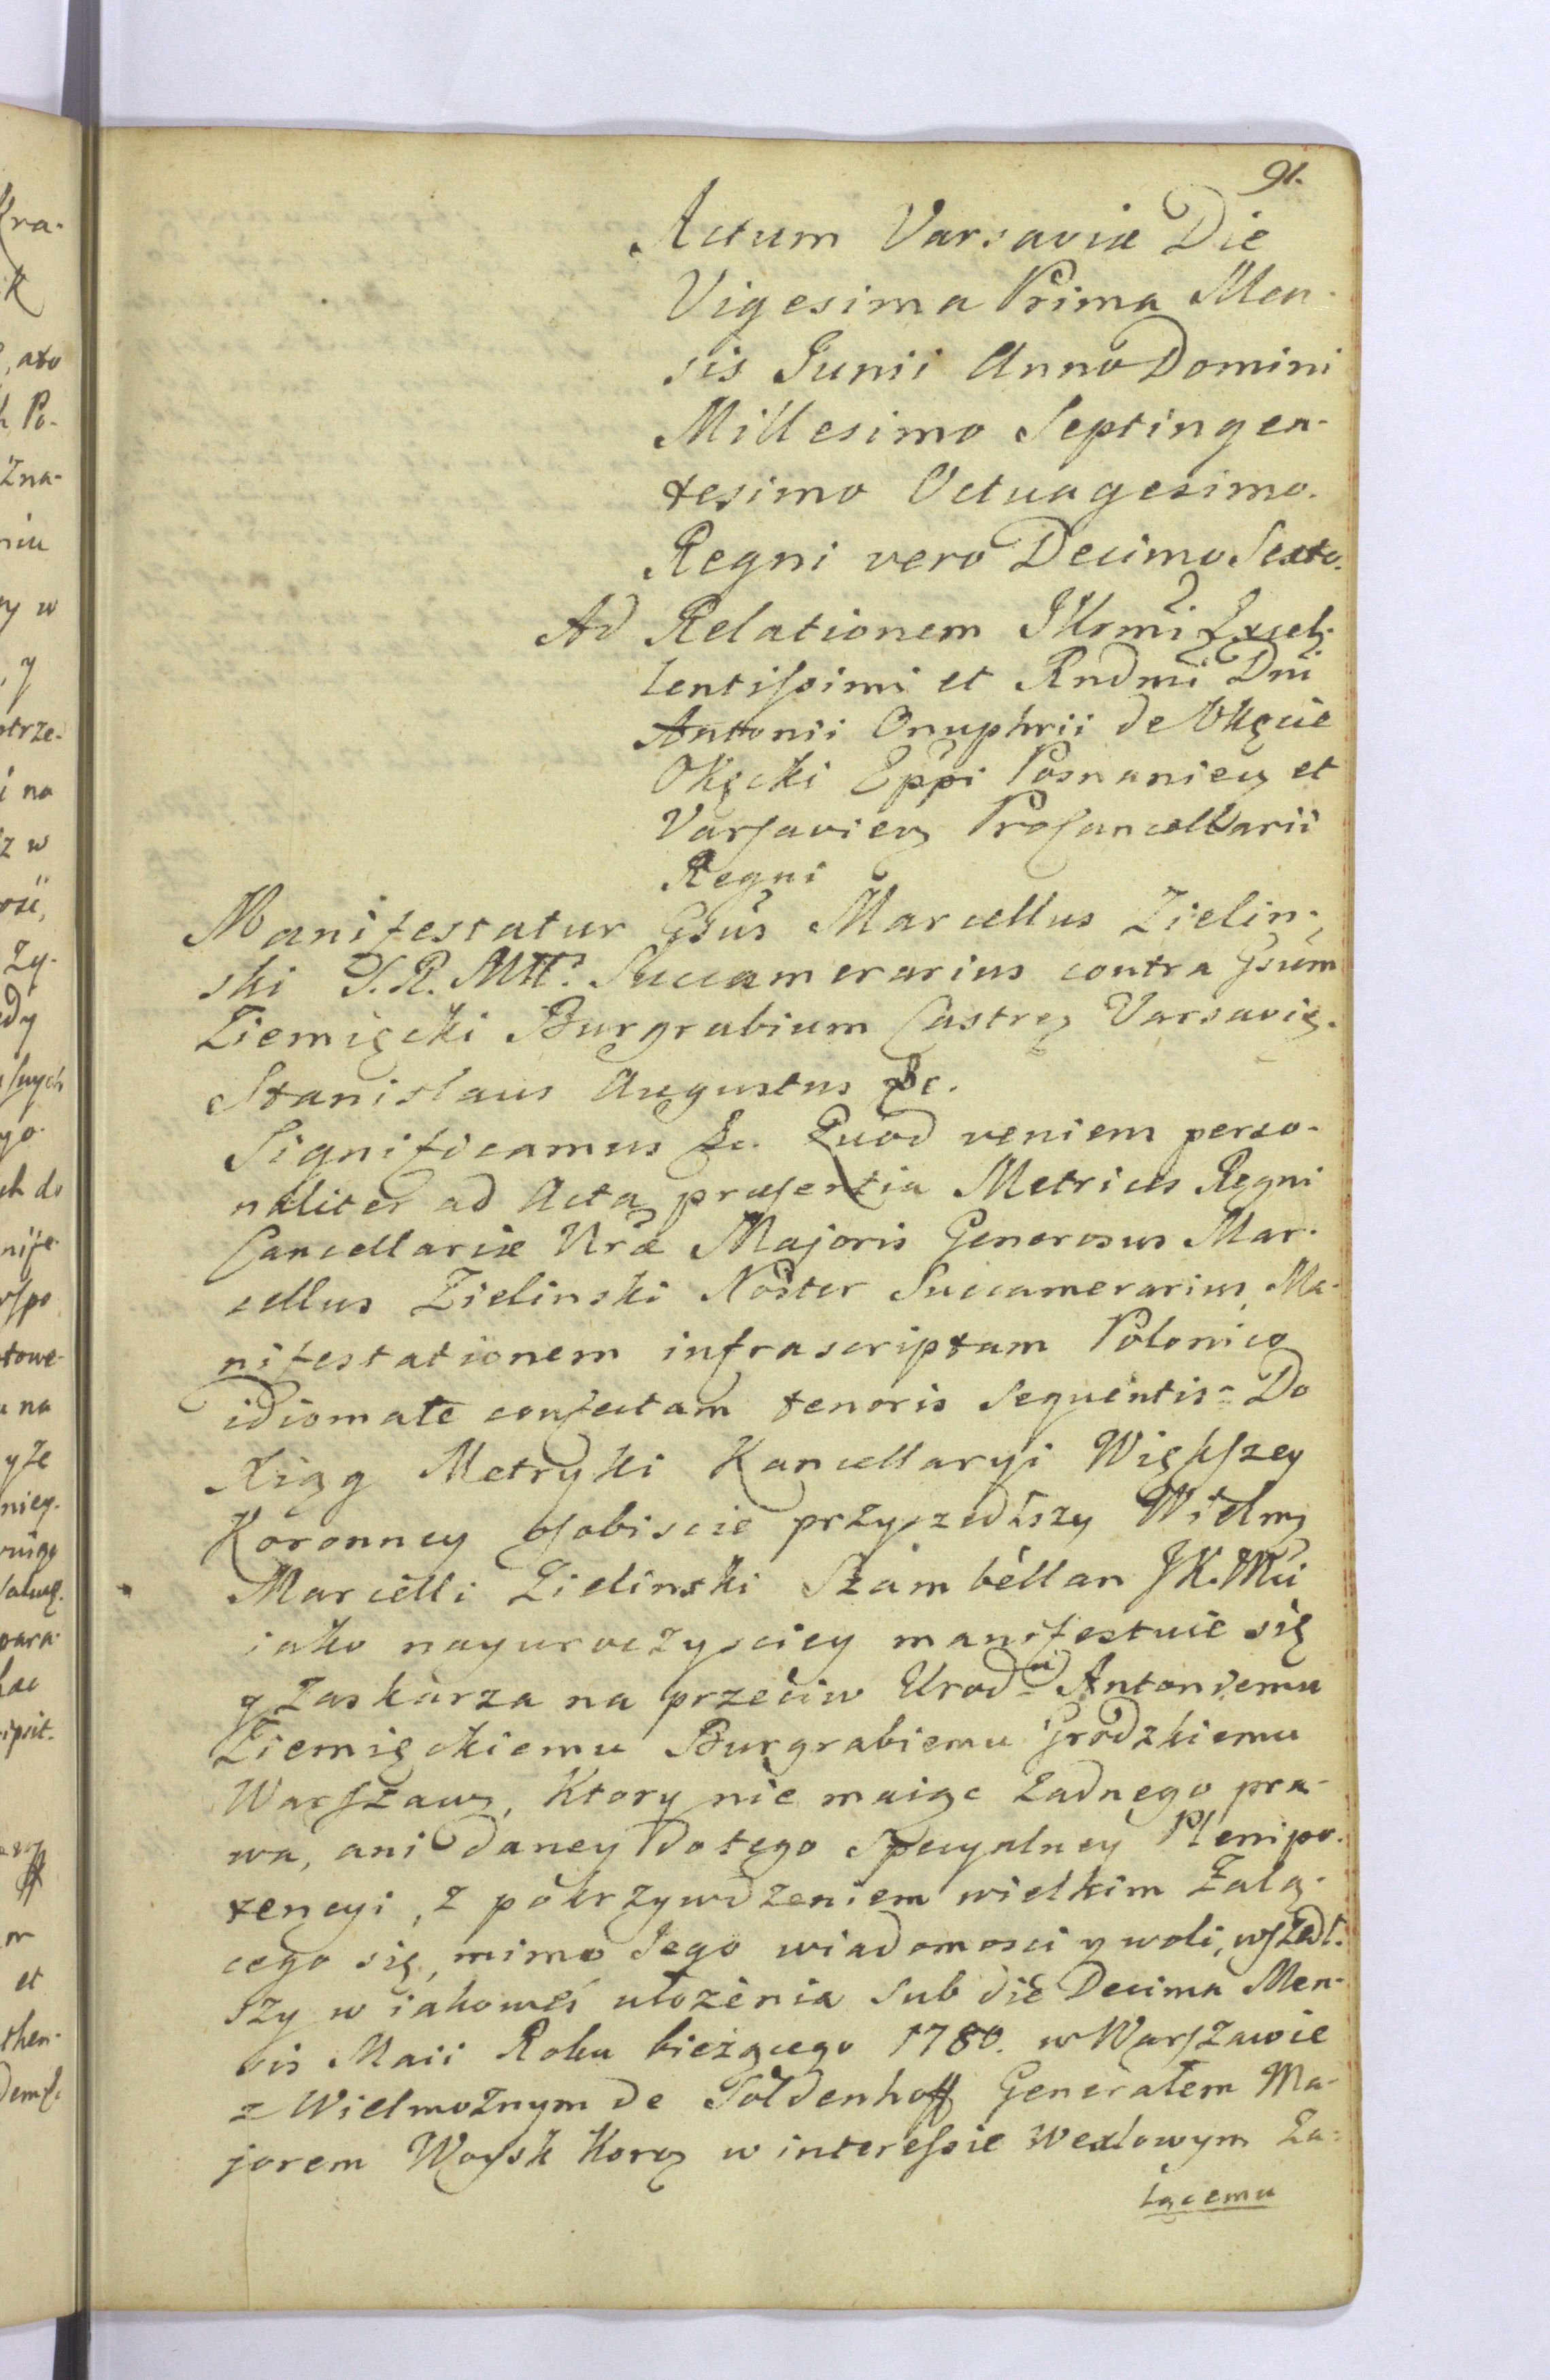 91.
Actum Varsaviæ Die
Vigesima Prima Men-
sis Junii Anno Domini
Millesimo Septingen-
tesimo Octuagesimo.
Regni vero Decimo Sexto.
Ad Relationem Illrmi Excel-
lentissimi et Rndmi Dni
Antonii Onuphrii de Okęcie
Okęcki Eppi Posnanien et
Varsavien Procancellarii
Regni
Manifestatur Gsus Marcellus Zielin-
ski S. R. Mtt. Succamerarius contra Gsum
Ziemięcki Burgrabium Castren Varsavię.
Stanislaus Augustus &c.
Significamus &c. Quod veniens perso-
naliter ad Acta præsentia Metrices Regni
Cancellariæ Nræ Majoris Generosus Mar-
cellus Zielinski Noster Succamerarius, Ma-
nifestationem infrascriptam Polonico
idiomate confectam tenoris sequentis = Do
Xiąg Metryki Kancellaryi Większey
Koronney osobiscie przyszedłszy Wielmy
Marcelli Zielinski Szambellan JK.Mci
iako nayuroczysciey manifestuie się
y zaskarza na przeciw Urod. Antoniemu
Ziemięckiemu Burgrabiemu Grodzkiemu
Warszaw, Ktory nie maiąc żadnego pra-
wa, ani daney do tego Specyalney Plenipo-
tencyi, z pokrzywdzeniem wielkim Żalą-
cego się, mimo Jego wiadomosci y woli, wszedł-
szy w iakoweś ułożenia sub die Decima Men-
sis Maii Roku bieżącego 1780. w Warszawie
z Wielmożnym de Poldenhoff Generałem Ma-
jorem Woysk Koron w interessie Wexlowym Ża-
lącemu